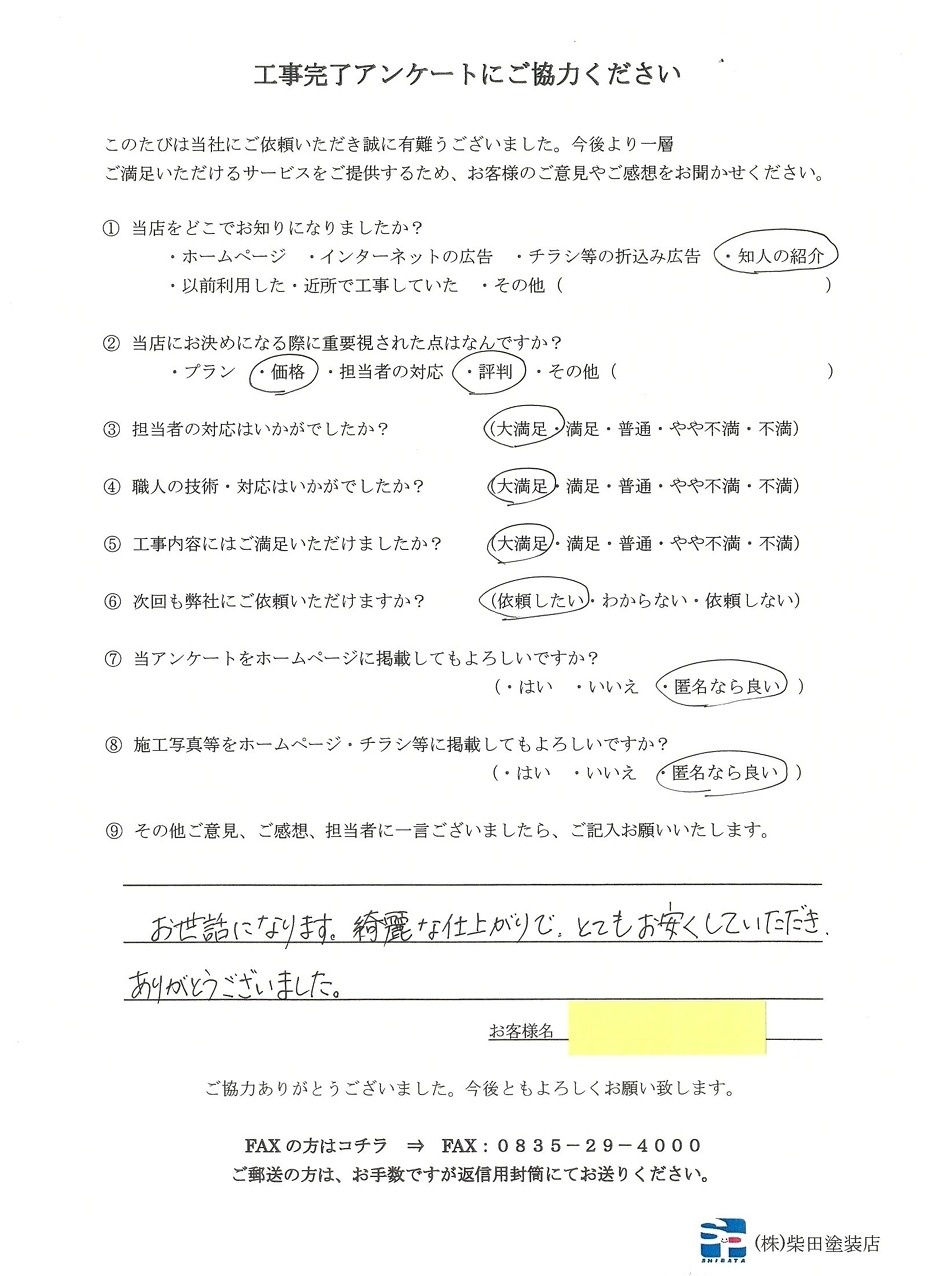 工事完了アンケートにご協力ください
このたびは当社にご依頼いただき誠に有難うございました。今後より一層
ご満足いただけるサービスをご提供するため、お客様のご意見やご感想をお聞かせください。
① 当店をどこでお知りになりましたか？
・ホームページ ・インターネットの広告 ・チラシ等の折込み広告 ・知人の紹介
・以前利用した・近所で工事していた ・その他（ ）
② 当店にお決めになる際に重要視された点はなんですか？
・プラン ・価格 ・担当者の対応 ・評判 ・その他（ ）
③ 担当者の対応はいかがでしたか？ （大満足・満足・普通・やや不満・不満）
④ 職人の技術・対応はいかがでしたか？ （大満足・満足・普通・やや不満・不満）
⑤ 工事内容にはご満足いただけましたか？ （大満足・満足・普通・やや不満・不満）
⑥ 次回も弊社にご依頼いただけますか？ （依頼したい・わからない・依頼しない）
⑦ 当アンケートをホームページに掲載してもよろしいですか？
（・はい ・いいえ ・匿名なら良い ）
⑧ 施工写真等をホームページ・チラシ等に掲載してもよろしいですか？
（・はい ・いいえ ・匿名なら良い ）
⑨ その他ご意見、ご感想、担当者に一言ございましたら、ご記入お願いいたします。
お世話になります。綺麗な仕上がりで、とてもお安くしていただき、
ありがとうございました。
お客様名
ご協力ありがとうございました。今後ともよろしくお願い致します。
FAX の方はコチラ ⇒ FAX：０８３５－２９－４０００
ご郵送の方は、お手数ですが返信用封筒にてお送りください。
SP SHIBATA (株)柴田塗装店